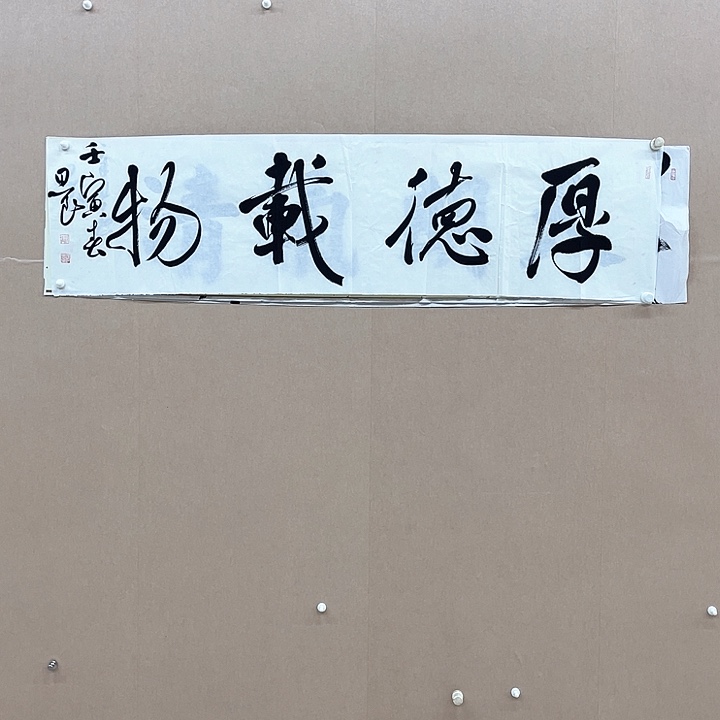 厚德載物
壬寅春